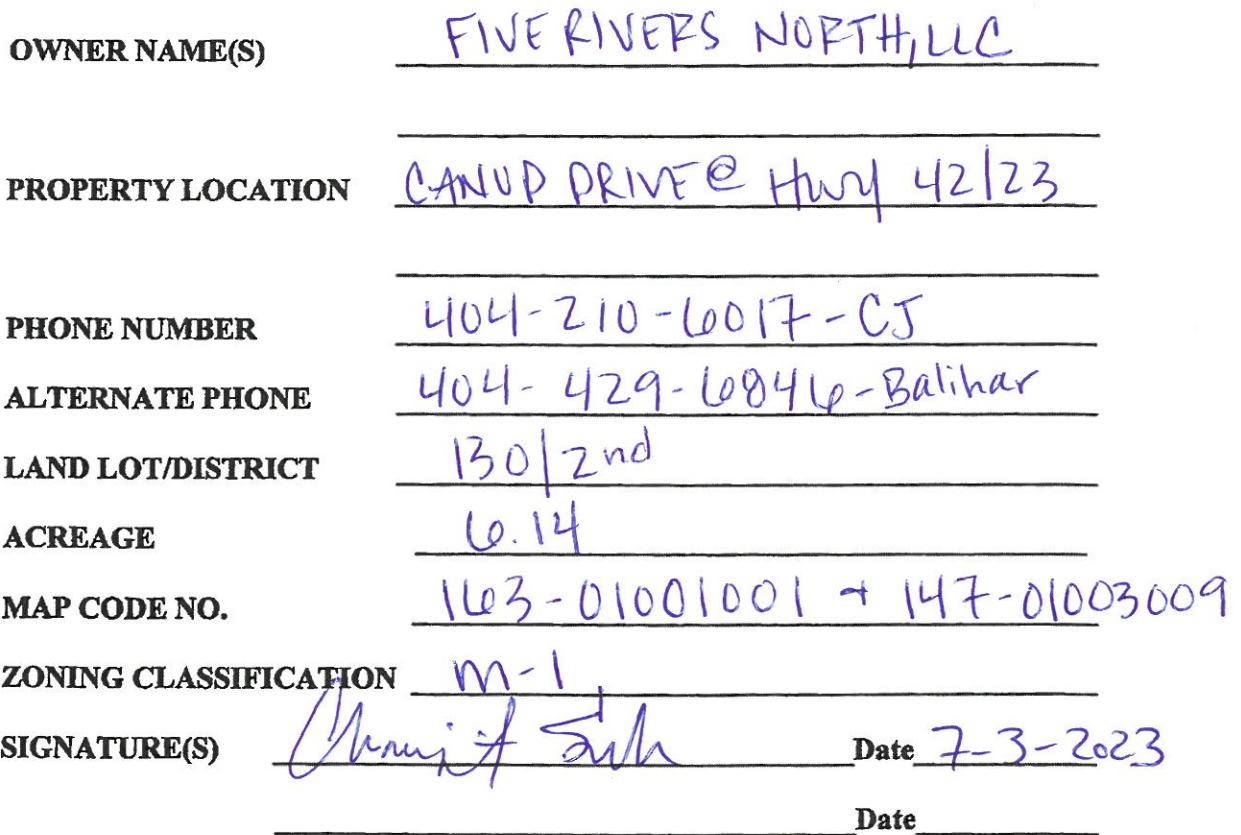 OWNER NAME(S) FIVE RIVERS NORTH, LLC
PROPERTY LOCATION CANUP DRIVE @ Hwy 42/23
PHONE NUMBER 404-210-6017-CJ
ALTERNATE PHONE 404-429-6846-Balihar
LAND LOT/DISTRICT 130/2nd
ACREAGE 6.14
MAP CODE NO. 163-01001001 + 147-01003009
ZONING CLASSIFICATION M-1
SIGNATURE(S) Date 7-3-2023
Date